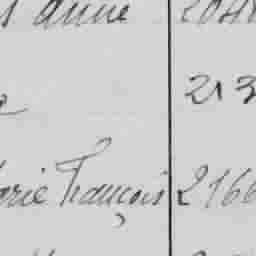 anne 204
213
arie François 2166